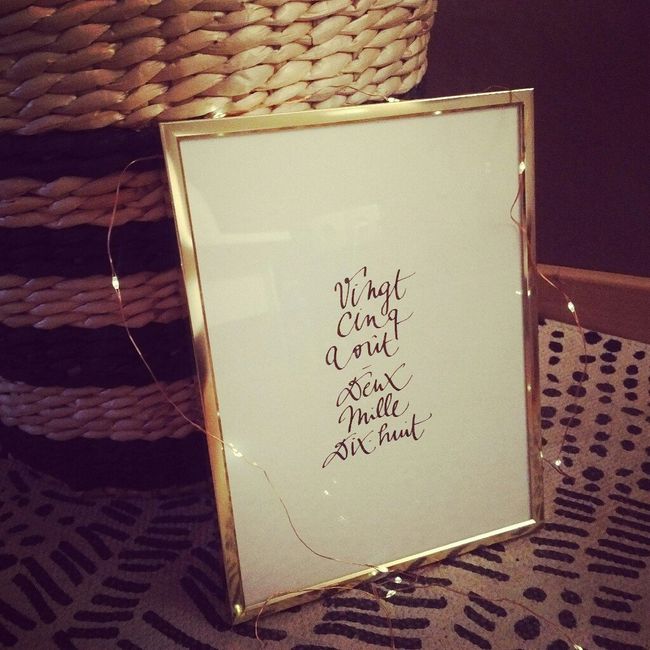 Vingt
Cinq
août
-
Deux
Mille
Dix-huit